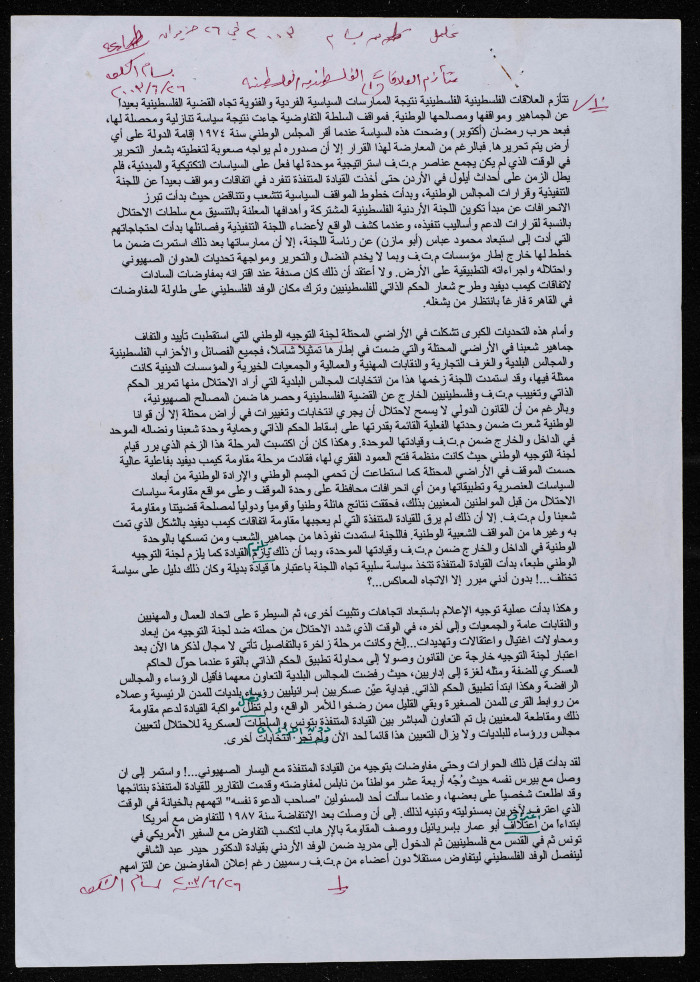 ٢٠٠٣ في ٢٦ حزيران
بسام الشكعه
٢٠٠٣/٦/٢٦
تتأزم العلاقات الفلسطينية الفلسطينية
تتأزم العلاقات الفلسطينية الفلسطينية نتيجة الممارسات السياسية الفردية والفئوية تجاه القضية الفلسطينية بعيداً
عن الجماهير ومواقفها ومصالحها الوطنية. فمواقف السلطة التفاوضية جاءت نتيجة سياسة تنازلية ومحصلة لها،
فبعد حرب رمضان (أكتوبر) وضحت هذه السياسة عندما أقر المجلس الوطني سنة ١٩٧٤ إقامة الدولة على أي
أرض يتم تحريرها. فبالرغم من المعارضة لهذا القرار إلا أن صدوره لم يواجه صعوبة لتغطيته بشعار التحرير
في الوقت الذي لم يكن يجمع عناصر م.ت.ف استراتيجية موحدة لها فعل على السياسات التكتيكية والمبدئية، فلم
يطل الزمن على أحداث أيلول في الأردن حتى أخذت القيادة المتنفذة تنفرد في اتفاقات ومواقف بعيداً عن اللجنة
التنفيذية وقرارات المجالس الوطنية، وبدأت خطوط المواقف السياسية تتشعب وتتناقض حيث بدأت تبرز
الانحرافات عن مبدأ تكوين اللجنة الأردنية الفلسطينية المشتركة وأهدافها المعلنة بالتنسيق مع سلطات الاحتلال
بالنسبة لقرارات الدعم وأساليب تنفيذه، وعندما كشف الواقع لأعضاء اللجنة التنفيذية وفصائلها بدأت احتجاجاتهم
التي أدت إلى استبعاد محمود عباس (أبو مازن) عن رئاسة اللجنة، إلا أن ممارساتها بعد ذلك استمرت ضمن ما
خطط لها خارج إطار مؤسسات م.ت.ف وبما لا يخدم النضال والتحرير ومواجهة تحديات العدوان الصهيوني
واحتلاله واجراءاته التطبيقية على الأرض. ولا أعتقد أن ذلك كان صدفة عند اقترانه بمفاوضات السادات
لاتفاقات كيمب ديفيد وطرح شعار الحكم الذاتي للفلسطينيين وترك مكان الوفد الفلسطيني على طاولة المفاوضات
في القاهرة فارغاً بانتظار من يشغله.
وأمام هذه التحديات الكبرى تشكلت في الأراضي المحتلة لجنة التوجيه الوطني التي استقطبت تأييد والتفاف
جماهير شعبنا في الأراضي المحتلة والتي ضمت في إطارها تمثيلاً شاملاً، فجميع الفصائل والأحزاب الفلسطينية
والمجالس البلدية والغرف التجارية والنقابات المهنية والعمالية والجمعيات الخيرية والمؤسسات الدينية كانت
ممثلة فيها، وقد استمدت اللجنة زخمها هذا من انتخابات المجالس البلدية التي أراد الاحتلال منها تمرير الحكم
الذاتي وتغييب م.ت.ف وفلسطينيين الخارج عن القضية الفلسطينية وحصرها ضمن المصالح الصهيونية،
وبالرغم من أن القانون الدولي لا يسمح لاحتلال أن يجري انتخابات وتغييرات في أراض محتلة إلا أن قوانا
الوطنية شعرت ضمن وحدتها الفعلية القائمة بقدرتها على إسقاط الحكم الذاتي وحماية وحدة شعبنا ونضاله الموحد
في الداخل والخارج ضمن م.ت.ف وقيادتها الموحدة. وهكذا كان أن اكتسبت المرحلة هذا الزخم الذي برر قيام
لجنة التوجيه الوطني حيث كانت منظمة فتح العمود الفقري لها، فقادت مرحلة مقاومة كيمب ديفيد بفاعلية عالية
حسمت الموقف في الأراضي المحتلة كما استطاعت أن تحمي الجسم الوطني والإرادة الوطنية من أبعاد
السياسات العنصرية وتطبيقاتها ومن أي انحرافات محافظة على وحدة الموقف وعلى مواقع مقاومة سياسات
الاحتلال من قبل المواطنين المعنيين بذلك، فحققت نتائج هائلة وطنياً وقومياً ودولياً لمصلحة قضيتنا ومقاومة
شعبنا ول م.ت.ف. إلا أن ذلك لم يرق للقيادة المتنفذة التي لم يعجبها مقاومة اتفاقات كيمب ديفيد بالشكل الذي تمت
به وغيرها من المواقف الشعبية الوطنية. فاللجنة استمدت نفوذها من جماهير الشعب ومن تمسكها بالوحدة
الوطنية في الداخل والخارج ضمن م.ت.ف وقيادتها الموحدة، وبما أن ذلك يأزم يلزم القيادة كما يلزم لجنة التوجيه
الوطني طبعاً، بدأت القيادة المتنفذة تتخذ سياسة سلبية تجاه اللجنة باعتبارها قيادة بديلة وكان ذلك دليل على سياسة
تختلف...! بدون أدني مبرر إلا الاتجاه المعاكس...؟
وهكذا بدأت عملية توجيه الإعلام باستبعاد اتجاهات وتثبيت أخرى، ثم السيطرة على اتحاد العمال والمهنيين
والنقابات عامة والجمعيات وإلى أخره، في الوقت الذي شدد الاحتلال من حملته ضد لجنة التوجيه من إبعاد
ومحاولات اغتيال واعتقالات وتهديدات...إلخ وكانت مرحلة زاخرة بالتفاصيل تأتي لا مجال لذكرها الآن بعد
اعتبار لجنة التوجيه خارجة عن القانون وصولاً إلى محاولة تطبيق الحكم الذاتي بالقوة عندما حول الحاكم
العسكري للضفة ومثله لغزة إلى إداريين، حيث رفضت المجالس البلدية التعاون معهما فأقيل الرؤساء والمجالس
الرافضة وهكذا ابتدأ تطبيق الحكم الذاتي. فبداية عيّن عسكريين إسرائيليين رؤساء بلديات للمدن الرئيسية وعملاء
من روابط القرى للمدن الصغيرة وبقي القليل ممن رضخوا للأمر الواقع، ولم تظل مواكبة القيادة لدعم مقاومة
ذلك ومقاطعة المعنيين بل تم التعاون المباشر بين القيادة المتنفذة بتونس والسلطات العسكرية للاحتلال لتعيين
مجالس ورؤساء للبلديات ولا يزال التعيين هذا قائما لحد الآن ولم تجر انتخابات أخرى.
لقد بدأت قبل ذلك الحوارات وحتى مفاوضات بتوجيه من القيادة المتنفذة مع اليسار الصهيوني...! واستمر إلى ان
وصل مع بيرس نفسه حيث وُجّه أربعة عشر مواطناً من نابلس لمفاوضته وقدمت التقارير للقيادة المتنفذة بنتائجها
وقد اطلعت شخصياً على بعضها، وعندما سألت أحد المسئولين "صاحب الدعوة نفسه" اتهمهم بالخيانة في الوقت
الذي اعترف لآخرين بمسئوليته وتبنيه لذلك. إلى أن وصلت بعد الانتفاضة سنة ١٩٨٧ للتفاوض مع أمريكا
ابتداءاً من إعتلاف اعتراف أبو عمار بإسرائيل ووصف المقاومة بالإرهاب لتكسب التفاوض مع السفير الأمريكي في
تونس ثم في القدس مع فلسطينيين ثم الدخول إلى مدريد ضمن الوفد الأردني بقيادة الدكتور حيدر عبد الشافي
لينفصل الوفد الفلسطيني ليتفاوض مستقلاً دون أعضاء من م.ت.ف رسميين رغم إعلان المفاوضين عن التزامهم
بسام الشكعه ٢٠٠٣/٦/٢٦